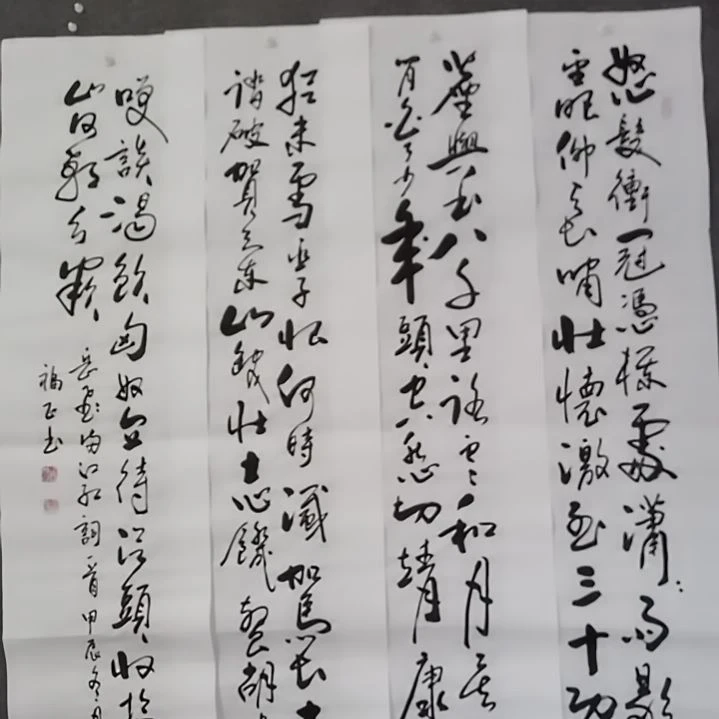 怒髮衝冠憑欄處瀟瀟雨歇
望眼仰天長嘯壯懷激烈三十功
塵與土八千里路雲和月莫
閒白了少年頭空悲切靖康
猶未雪臣子恨何時滅駕長車
踏破賀蘭山缺壯志飢餐胡
笑談渴飲匈奴血待從頭收拾
山河朝天闕
岳飛滿江紅詞一首甲辰冬月
福正書